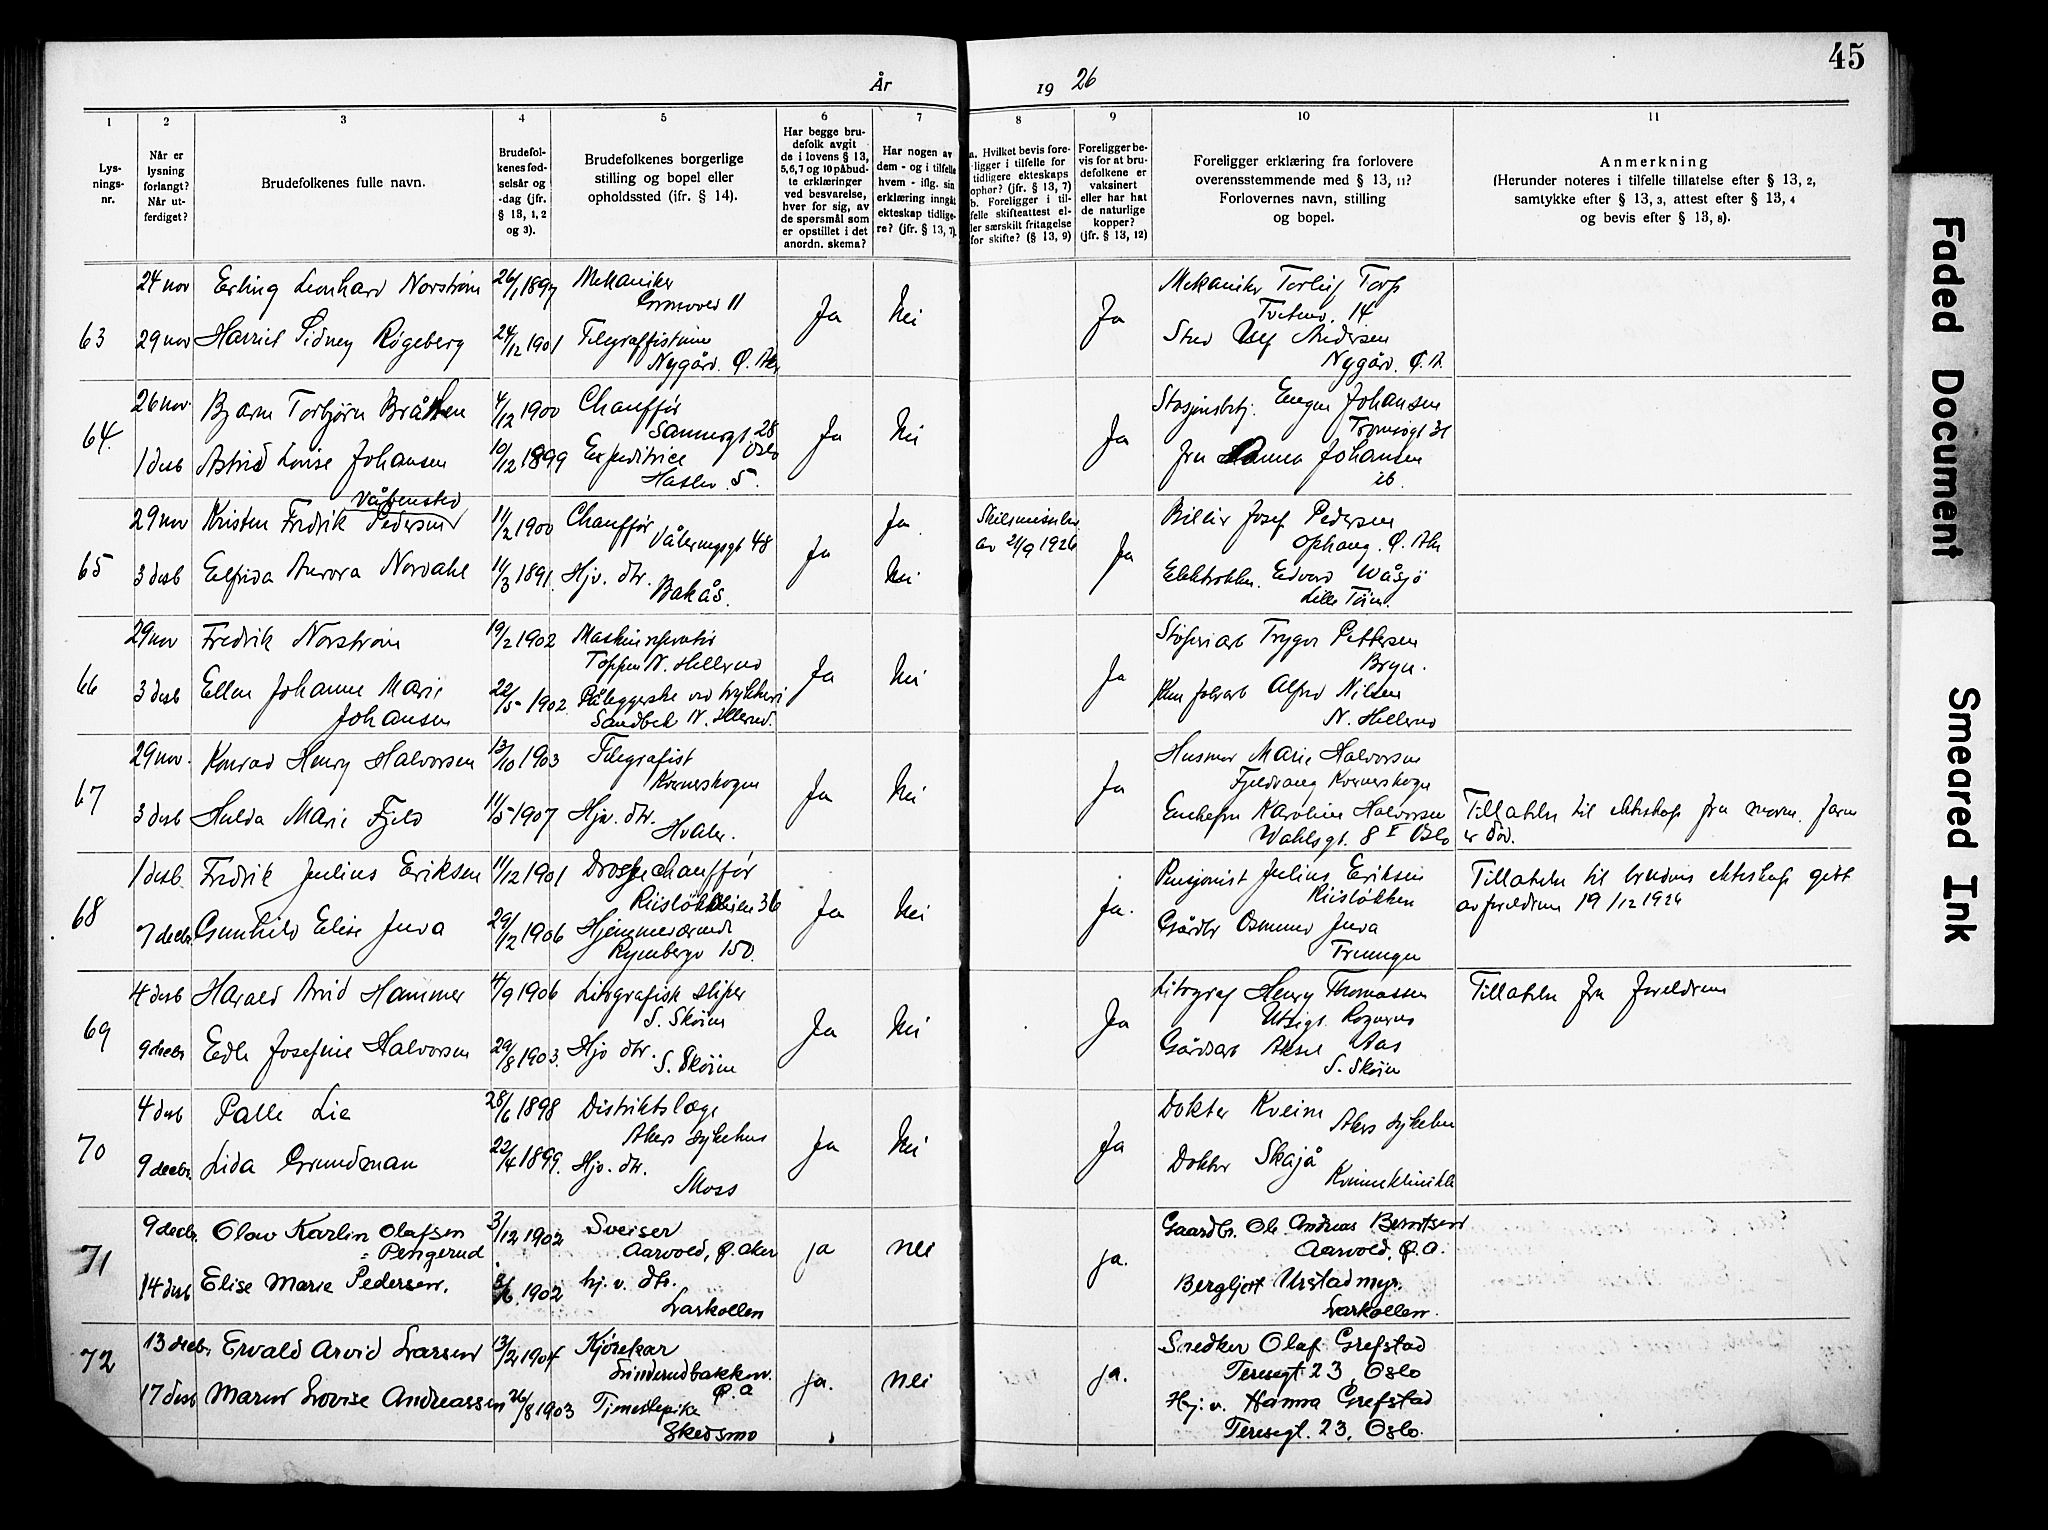 45
År 19 26
1 2 3 4 5 6 7 8 9 10 11
Lys-
nings-
nr.
Når er
lysning
forlangt?
Når ut-
ferdiget?
Brudefolkenes fulle navn.
Brudefol-
kenes fød-
selsår og
-dag (jfr.
§ 13, 1, 2
og 3).
Brudefolkenes borgerlige
stilling og bopel eller
opholdssted (jfr. § 14).
Har begge bru-
defolk avgit
de i lovens § 13,
5, 6, 7 og 10 påbud-
te erklæringer
ved besvarelse,
hver for sig, av
de spørsmål som
er opstillet i det
anordn. skema?
Har nogen av
dem - og i tilfelle
hvem - iflg. sin
erklæring inngåt
ekteskap tidlige-
re? (jfr. § 13, 7).
a. Hvilket bevis fore-
ligger i tilfelle for
tidligere ekteskaps
ophør? (jfr. § 13, 7)
b. Foreligger i til-
felle skifteattest el-
ler særskilt fritagelse
for skifte? (§ 13, 9)
Foreligger be-
vis for at bru-
defolkene er
vaksinert
eller har hat
de naturlige
kopper?
(jfr. § 13, 12)
Foreligger erklæring fra forlovere
overensstemmende med § 13, 11?
Forlovernes navn, stilling
og bopel.
Anmerkning
(Herunder noteres i tilfelle tillatelse efter § 13, 2,
samtykke efter § 13, 3, attest efter § 13, 4
og bevis efter § 13, 8).
63
24 nov Erling Leonhard Norstrøm 26/1 1897 Mekaniker
29 nov Harriet Sidney Røgeberg 24/12 1901 Telegrafistinne
Nygård. Ø. Aker
Ja Nei Ja
Mekaniker Torleif Torp
Tvetenv. 14
Stud Andersen
Nygård. Ø. A.
64.
26 nov. Bjarne Torbjørn Bråthen 4/12 1900 Chauffør
Sannergt. 28
Oslo
1 desb Astrid Lovise Johansen 10/12 1899 Expeditrice
Haslev. 5.
Ja Nei Ja
Stasjonsbetj. Johansen
Tromsøgt 31
Fru Hanna Johansen
ib.
65
Våpensted
29 nov Kristen Fredrik Pedersen 11/2 1900 Chauffør
Vålerenggt 48
3 desb Elfrida Aurora Nordahl 11/3 1891. Hjv. dtr.
Bakås.
Ja Ja. Nei
av 21/9 1926
Ja
Josef Pedersen
Ophaug. Ø. Aker
Edvard Wåsjø
Lille Tøien.
66
29 nov Fredrik Norstrøm 19/2 1902 Maskinreparatør
Toppen N. Hellerud
3 desb Ellen Johanne Marie
Johansen
22/5 1902 Påleggerske ved trykkeri
Sandbek N. Hellerud.
Ja Nei Ja
Støperiarb Trygve Pettersen
Bryn.
Alfred Nilsen
N. Hellerud
67
29 nov. Konrad Henry Halvorsen 13/10 1903 Telegrafist
Kværnerskogen
3 desb Hulda Marie Fjeld 11/5 1907 Hjv. dtr.
Hvaler.
Ja Nei Ja
Husmor Marie Halvorsen
Fjeldvang Kværnerskogen
Enkefru Karoline Halvorsen
Wahlsgt. 8 II Oslo
Tillatelse til ekteskap fra moren. faren
er død.
68
1 desb. Fredrik Julius Eriksen 11/12 1901 Drosjechauffør
Riisløkkveien 36
7 decbr Gunhild Elise Juva 29/12 1906 Hjemmeværende
Rymbergv 150.
Ja Nei Ja.
Pensjonist Julius Eriksen
Riisløkken
Gårdbr Osmund Juva
Tillatelse til brudens ekteskap gitt
av foreldrene 19/12 1926
69
4 desb Harald Arvid Hammer 4/9 1906 Litografisk sliper
S. Skøien
9 decbr Edle Josefine Halvorsen 29/8 1903. Hjv dtr.
S. Skøien
Ja Nei Ja
Litograf Henry Thomassen
Utsigt. Rognerud
Gårdsarb Aksel Aas
S. Skøien
Tillatelse fra foreldrene
70
4 desb Palle Lie 28/6 1898 Distriktslæge
Akers sykehus
9 decbr. Lida Grundsman 22/4 1899. Hjv. dtr.
Moss
Ja Nei Ja
Dokter Kveim
Akers sykehus
Doktor Skajå
Kvinneklinikken
71
9 decbr. Olav Karlin Olafsen
= Pengerud
3/12 1902 Sveiser
Aarvold, Ø. Aker
14 desb Elise Marie Pedersen. 3/6 1902 hj. v. dtr.
Larkollen
ja nei ja.
Gaardbr. Ole Andreas Berntsen
Aarvold, Ø. A.
Bergljot Urstadmyr.
Larkollen.
72
13 decbr. Ervald Arvid Larsen 13/2 1904 Kjørekar
Linderudbakken.
Ø. A
17 desb Maren Lovise Andreassen 26/8 1903 Tjenestepike
Skedsmo
ja. nei ja.
Snedker Olaf Grefstad
Teresegt 23, Oslo
Hj. v. Hanna Grefstad
Teresegt. 23, Oslo.
Faded Document
Smeared Ink